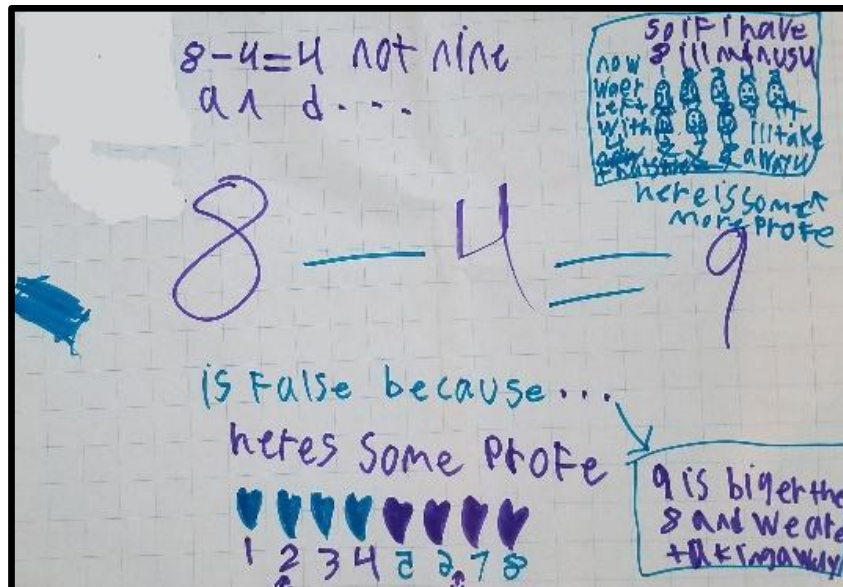 8-4=4 not nine
an d....
so if i have
8 ill minus 4
now
waer
left
with
4
ill take
away 4
here is some
more profe
8 — 4 = 9
is False because...
heres some profe
1 2 3 4 5 6 7 8
9 is biger the
8 and we are
taking away